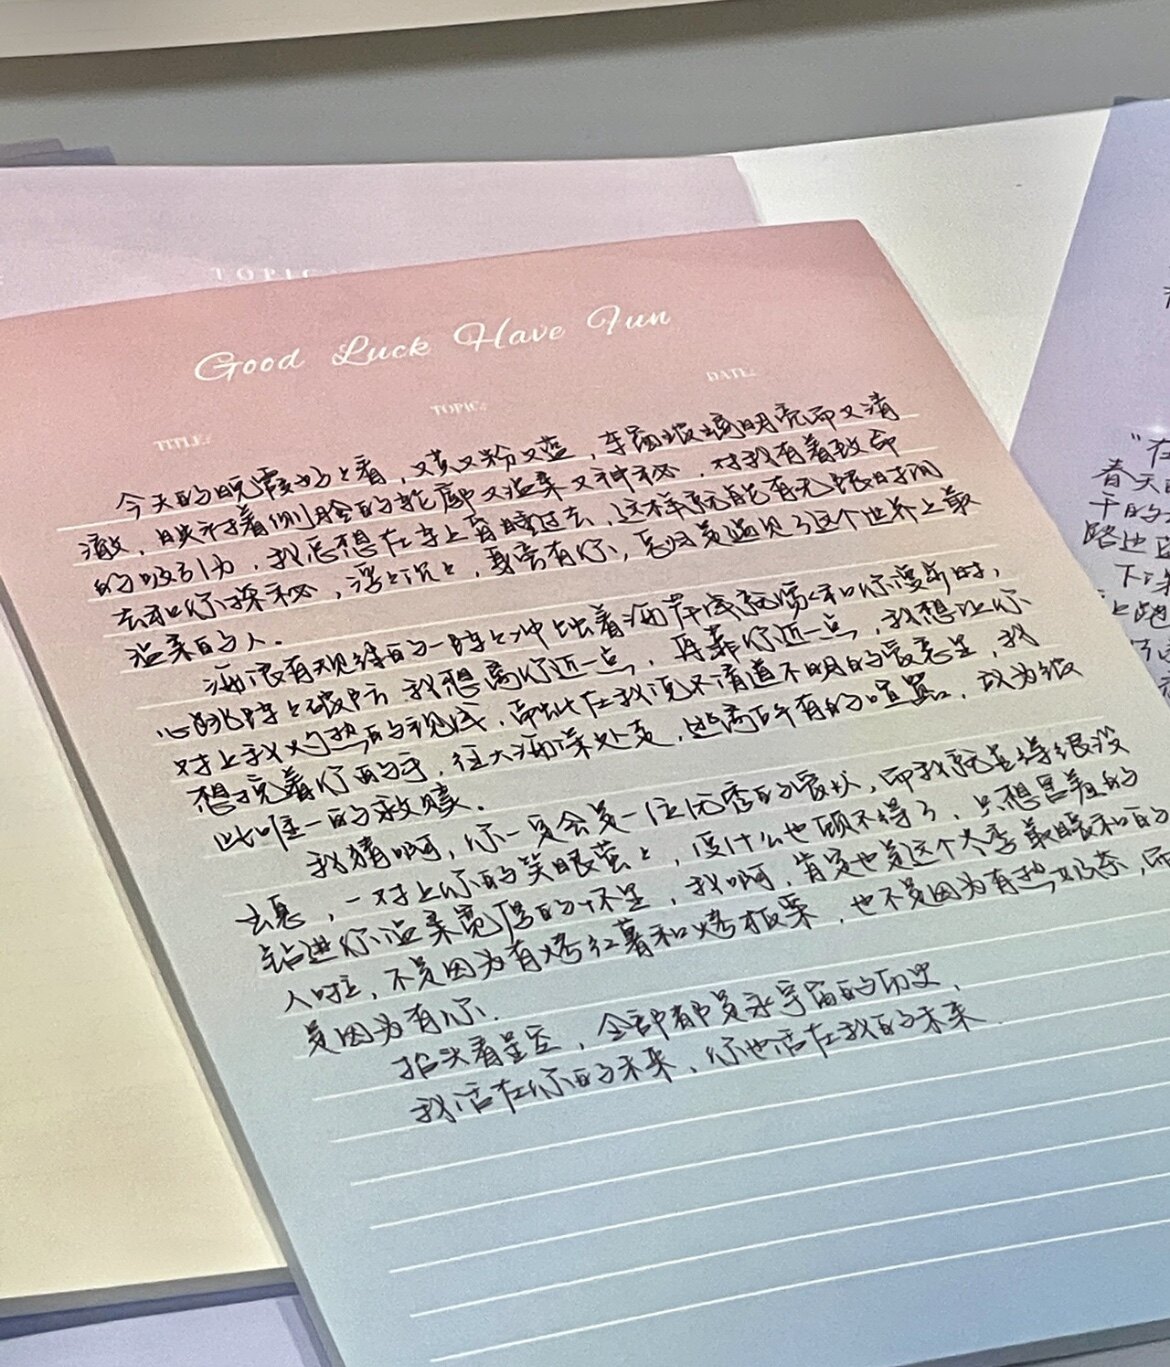 TOPIC:
Good Luck Have Fun
DATE:
TOPIC:
TITLE:
今天的晚霞好好看，又黄又粉又蓝，车窗玻璃明亮而又清
澈，映衬着侧脸的轮廓又温柔又神秘，对我有着致命
的吸引力，我总想在车上昏睡过去，这样就能有无限时间
去和你探秘，浮浮沉沉，身旁有你，总归是遇见了这个世界上最
温柔的人.
海浪有规律的一阵阵冲击着海岸
心跳阵阵破防 我想离你近一点，再靠你近一点，我想让你
对上我灼热的视线，而此在我说不清道不明的爱意里，我
想牵着你的手，往大海深处走，逃离所有的喧嚣，成为彼
此唯一的救赎.
我猜啊，你一定会是一位优秀的爱人，而我就是得很没
出息，一对上你的笑眼盈盈，便什么也顾不得了，只想害羞的
钻进你温柔宽厚的怀里，我啊，肯定也是这个冬季最暖和的
人啦，不是因为有烤红薯和烤板栗，也不是因为有热奶茶，而
是因为有你.
抬头看星空，全部都是宇宙的历史，
我活在你的未来，你也活在我的未来.
"在
春天
干的
路边
下